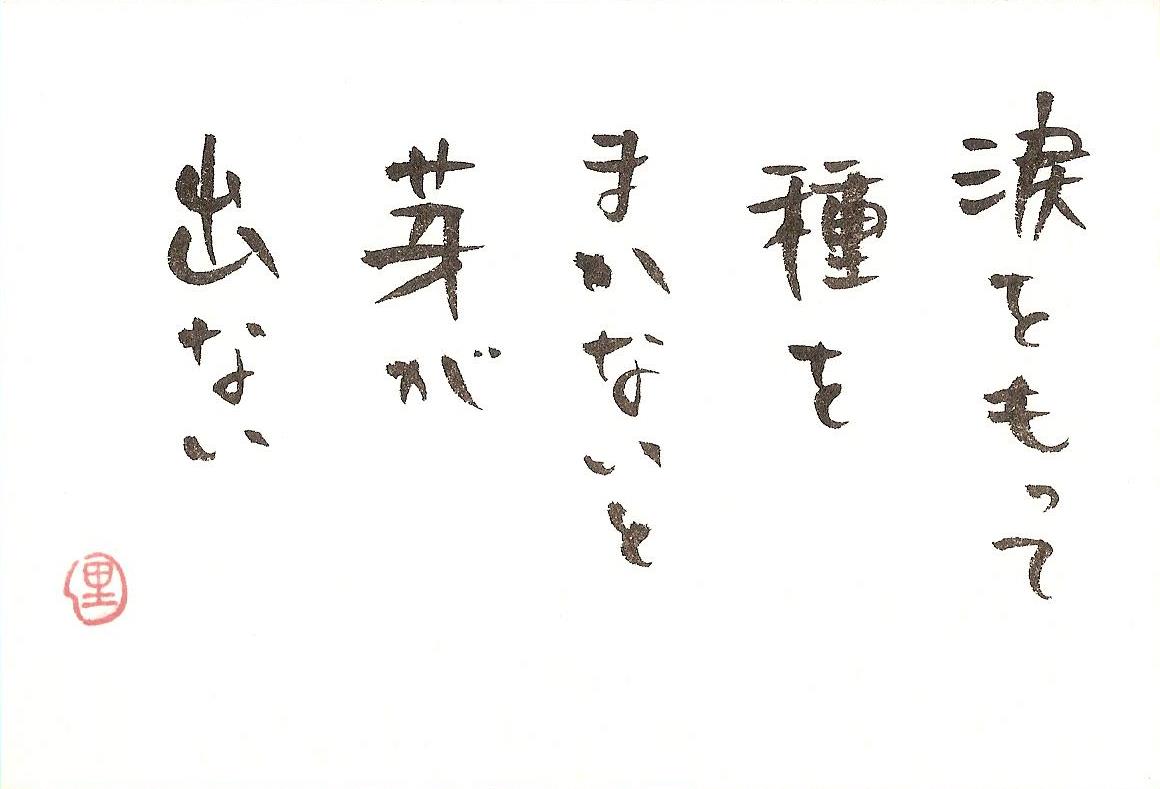 涙をもって
種を
まかないと
芽が
出ない
里